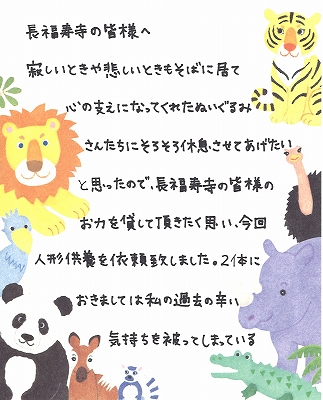 長福寿寺の皆様へ
寂しいときや悲しいときもそばに居て
心の支えになってくれたぬいぐるみ
さんたちにそろそろ休息させてあげたい
と思ったので、長福寿寺の皆様の
お力を貸して頂きたく思い、今回
人形供養を依頼致しました。2体に
おきましては私の過去の辛い
気持ちを被ってしまっている